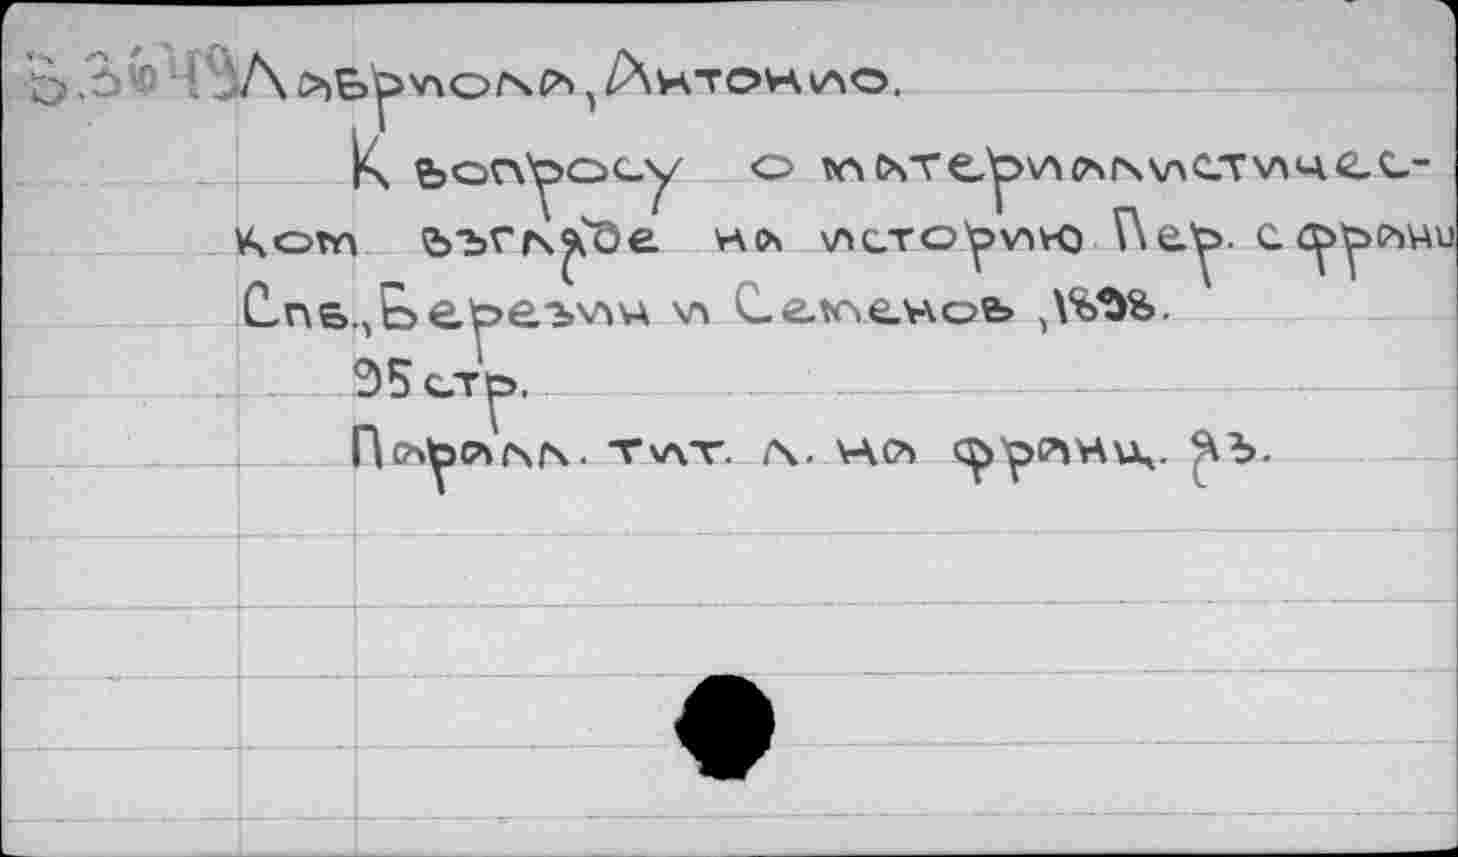 Лабриола, Антонио.
К вопросу о материалистичес-
ком взгляде на историю Пер. с франц
Спб., Березин и Семенов, 1898.
95 стр.
Паралл. тит. л. на франц. яз.